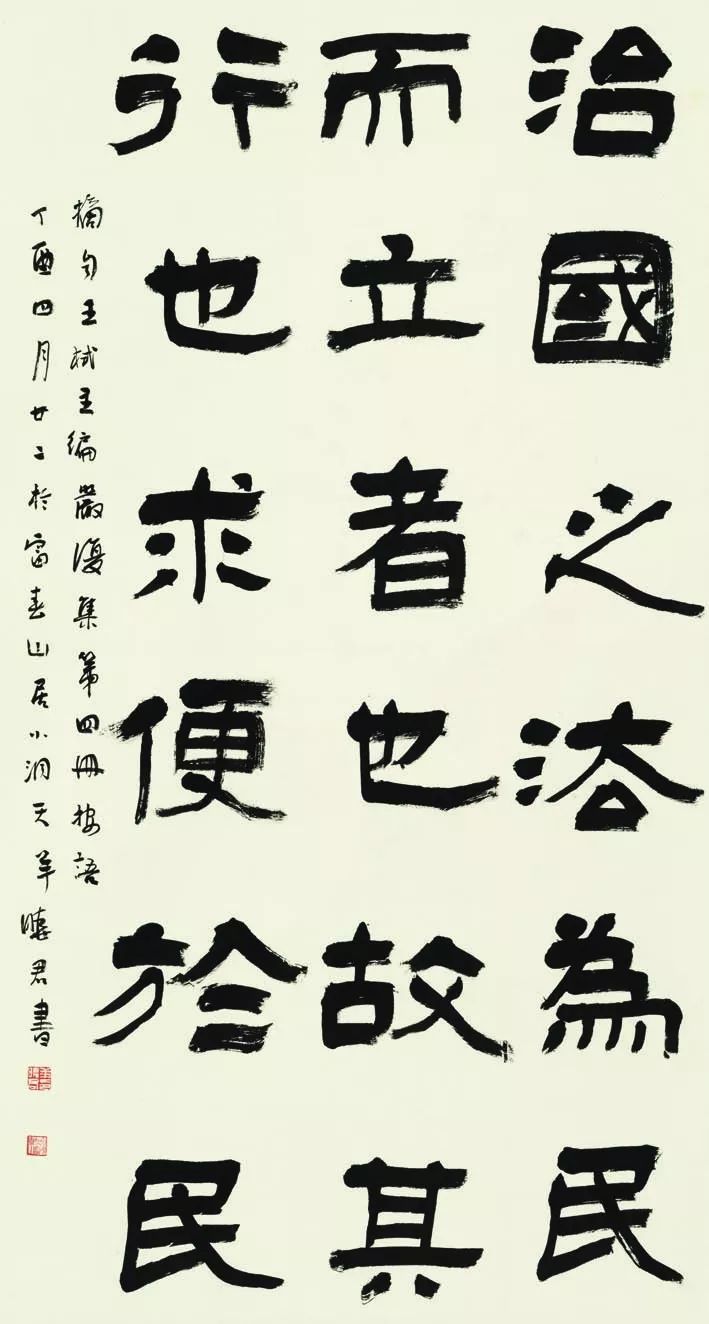 治國之法為民
而立者也故其
行也求便於民
摘句王栻主編嚴復集第四冊按語
丁酉四月廿二於富春山居小洞天羊曉君書